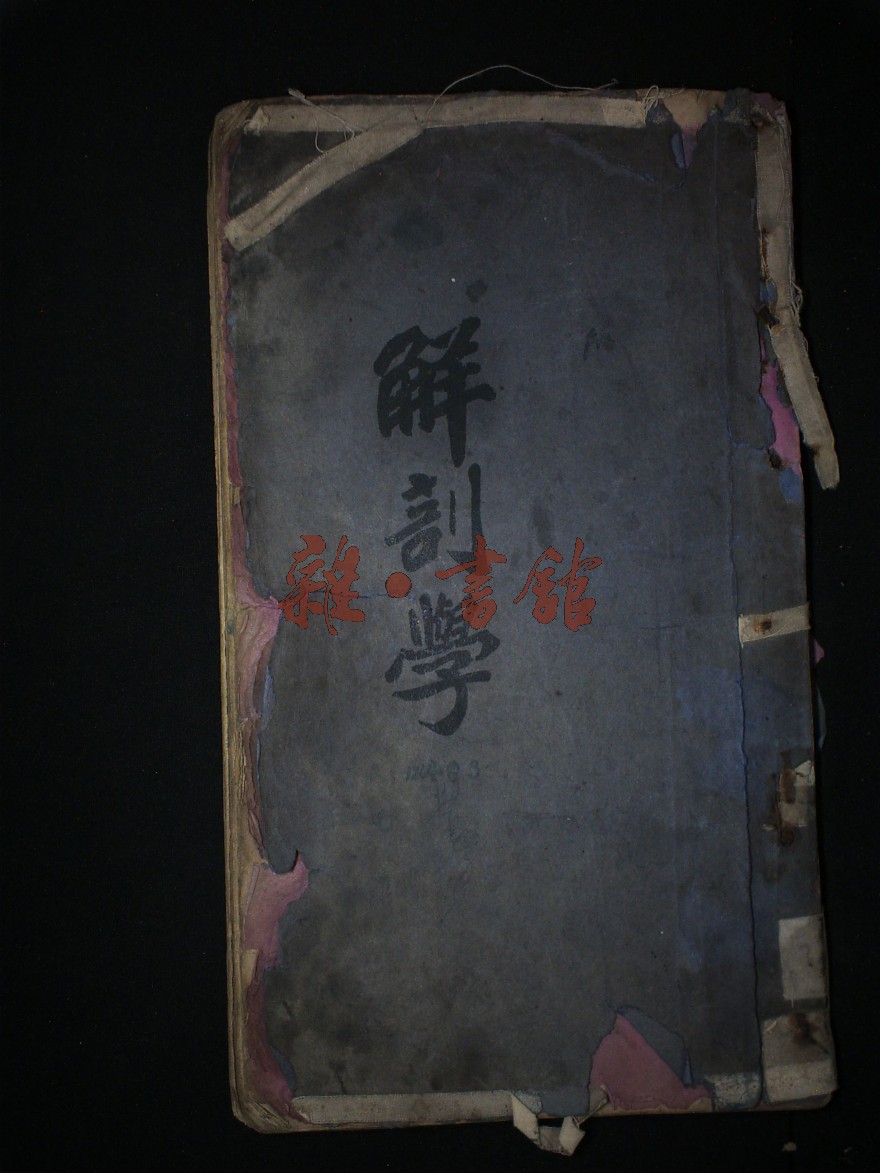 解剖學
雜·書館